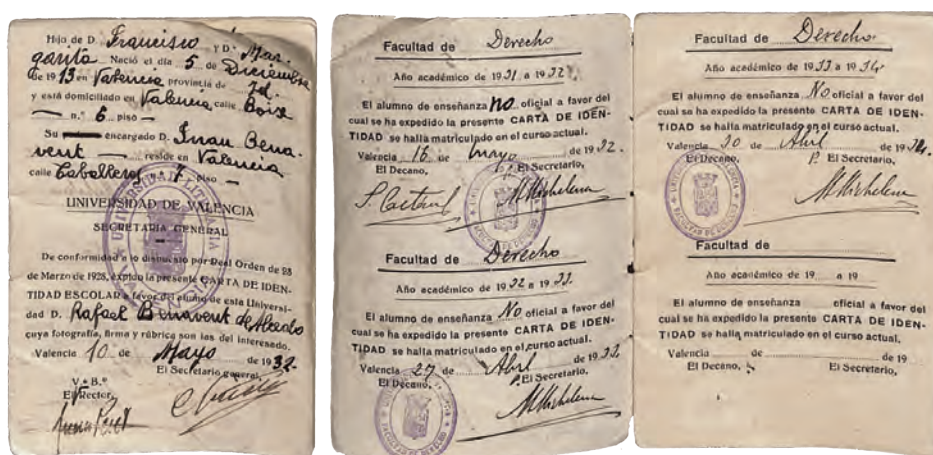 Hijo de D. Francisco y D.ª Mar-
garita Nació el día 5 de Diciembre
de 1913 en Valencia provincia de id.
y está domiciliado en Valencia calle Boix
n.º 6 piso —
Su encargado D. Juan Bena-
vent — reside en Valencia
calle Caballeros 7 piso —
UNIVERSIDAD DE VALENCIA
SECRETARIA GENERAL
De conformidad a lo dispuesto por Real Orden de 28
de Marzo de 1928, expido la presente CARTA DE IDEN-
TIDAD ESCOLAR a favor del alumno de esta Universi-
dad D. Rafael Benavent de
cuya fotografía, firma y rúbrica son las del interesado.
Valencia 10 de Mayo de 1932-
El Secretario general,
V.º B.º
El Rector,
Facultad de Derecho
Año académico de 1931 a 1932
El alumno de enseñanza no oficial a favor del
cual se ha expedido la presente CARTA DE IDEN-
TIDAD se halla matriculado en el curso actual.
Valencia 16 de mayo de 1932.
El Decano, P. El Secretario,
M Michelena
Facultad de Derecho
Año académico de 1932 a 1933
El alumno de enseñanza No oficial a favor del
cual se ha expedido la presente CARTA DE IDEN-
TIDAD se halla matriculado en el curso actual.
Valencia 27 de Abril de 1933.
El Decano, P. El Secretario,
M Michelena
Facultad de Derecho
Año académico de 1933 a 1934
El alumno de enseñanza No oficial a favor del
cual se ha expedido la presente CARTA DE IDEN-
TIDAD se halla matriculado en el curso actual.
Valencia 30 de Abril de 1934.
El Decano, P. El Secretario,
M Michelena
Facultad de
Año académico de 19 a 19
El alumno de enseñanza oficial a favor del
cual se ha expedido la presente CARTA DE IDEN-
TIDAD se halla matriculado en el curso actual.
Valencia de de 19
El Decano, El Secretario,